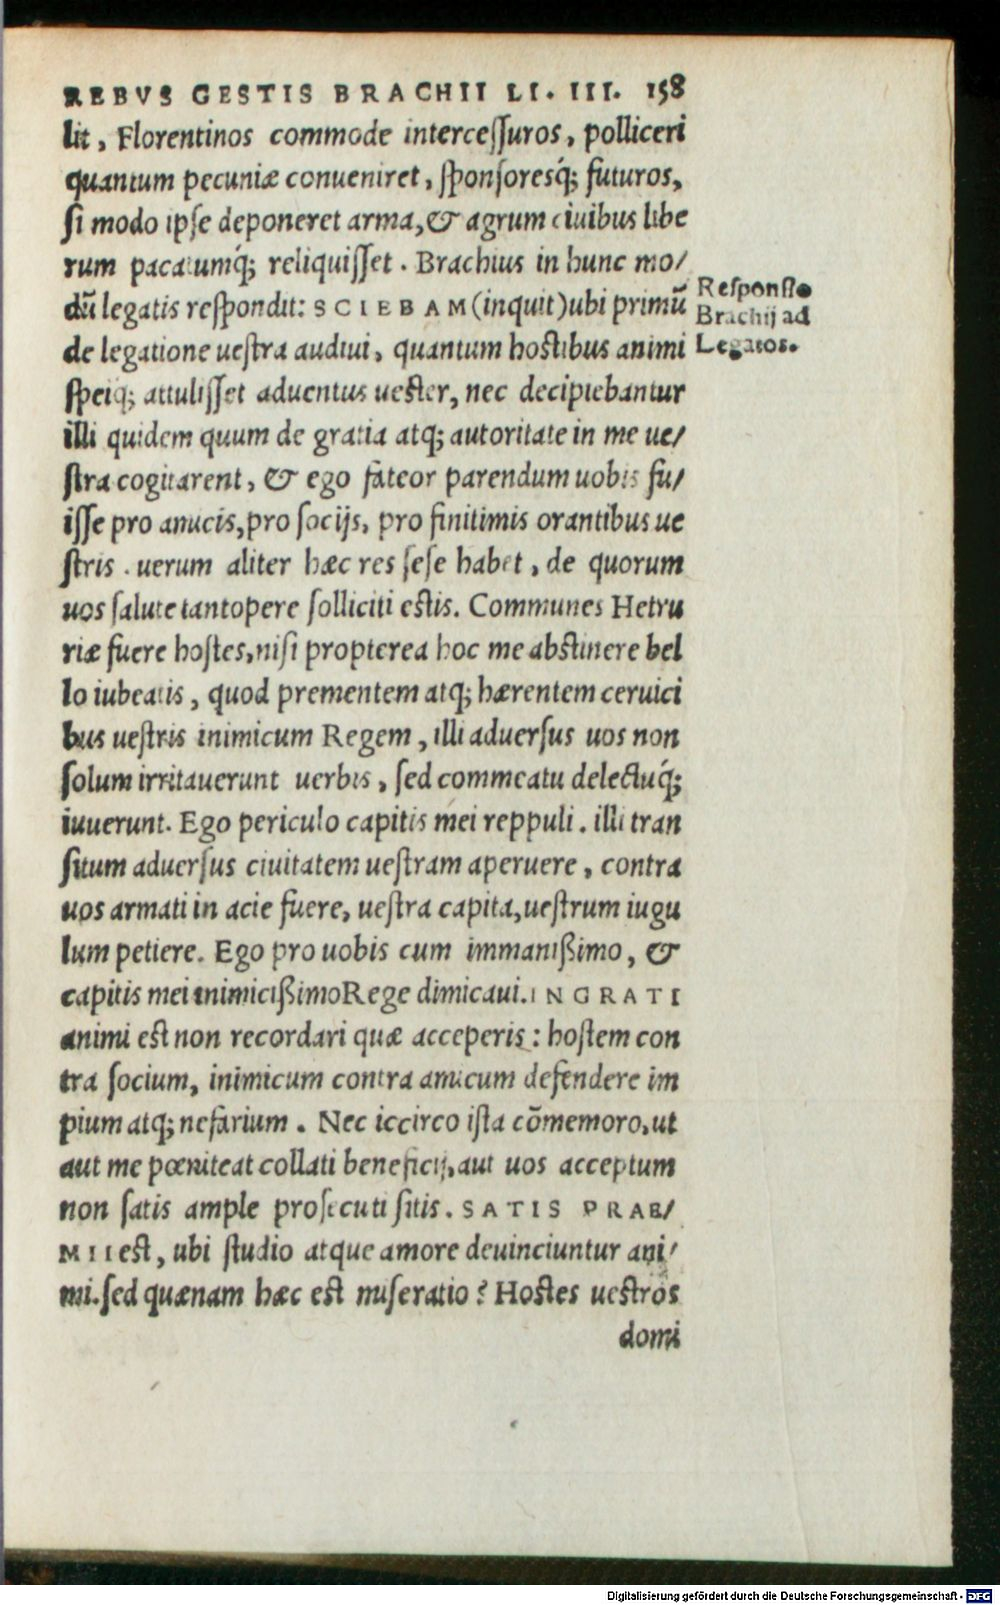 REBVS GESTIS BRACHII LI. III. 158
lit, Florentinos commode intercessuros, polliceri
quantum pecuniæ conueniret, sponsoresq́; futuros,
si modo ipse deponeret arma, & agrum ciuibus libe
rum pacatumq́; reliquisset. Brachius in hunc mo/
dũ legatis respondit: SCIEBAM (inquit) ubi primũ
de legatione uestra audiui, quantum hostibus animi
speiq; attulisset aduentus uester, nec decipiebantur
illi quidem quum de gratia atq; autoritate in me ue/
stra cogitarent, & ego fateor parendum uobis fu/
isse pro amicis, pro socijs, pro finitimis orantibus ue
stris. uerum aliter hæc res sese habet, de quorum
uos salute tantopere solliciti estis. Communes Hetru
riæ fuere hostes, nisi propterea hoc me abstinere bel
lo iubeatis, quod prementem atq; hærentem ceruici
bus uestris inimicum Regem, illi aduersus uos non
solum irritauerunt uerbis, sed commeatu delectuq́;
iuuerunt. Ego periculo capitis mei reppuli. illi tran
situm aduersus ciuitatem uestram aperuere, contra
uos armati in acie fuere, uestra capita, uestrum iugu
lum petiere. Ego pro uobis cum immanißimo, &
capitis mei inimicißimo Rege dimicaui. INGRATI
animi est non recordari quæ acceperis: hostem con
tra socium, inimicum contra amicum defendere im
pium atq; nefarium. Nec iccirco ista cõmemoro, ut
aut me pœniteat collati beneficij, aut uos acceptum
non satis ample prosecuti sitis. SATIS PRAE/
MII est, ubi studio atque amore deuinciuntur ani/
mi. sed quænam hæc est miseratio? Hostes uestros
domi
Responsio
Brachij ad
Legatos.
Digitalisierung gefördert durch die Deutsche Forschungsgemeinschaft - DFG